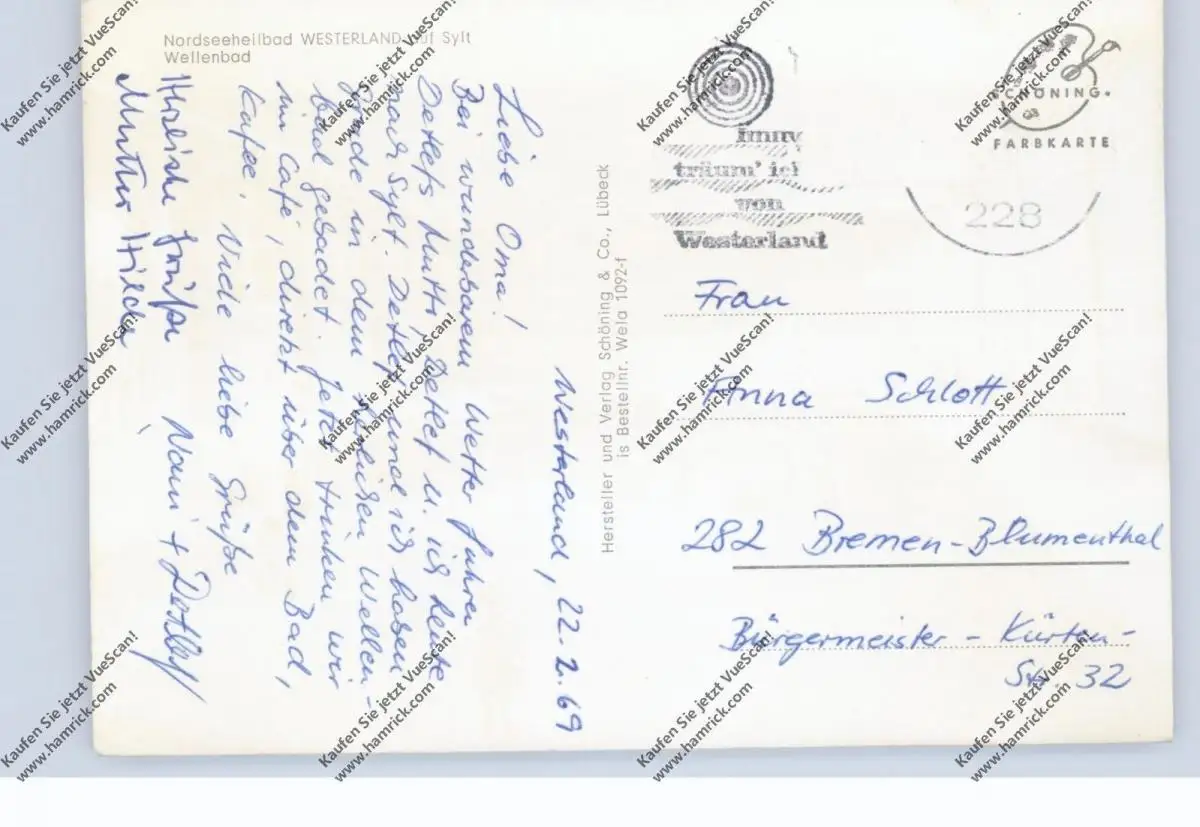 Nordseeheilbad WESTERLAND auf Sylt
Wellenbad
Westerland, 22.2.69
Liebe Oma!
Bei wunderbarem Wetter fuhren
Detlefs Mutti, Detlef u. ich heute
nach Sylt. Detlef und ich haben
gerade in dem heißen Wellen-
bad gebadet. Jetzt trinken wir
im Café, direkt über dem Bad,
Kaffee. Viele liebe Grüße
Nanni + Detlef
Herzliche Grüße
Mutter Hilde
Hersteller und Verlag Schöning & Co., Lübeck
is Bestellnr. Wela 1092-f
träum' ich
von
Westerland
SCHÖNING
FARBKARTE
228
Frau
Anna Schlott
282 Bremen-Blumenthal
Bürgermeister-Kürten-
Str. 32
Kaufen Sie jetzt VueScan!
www.hamrick.com